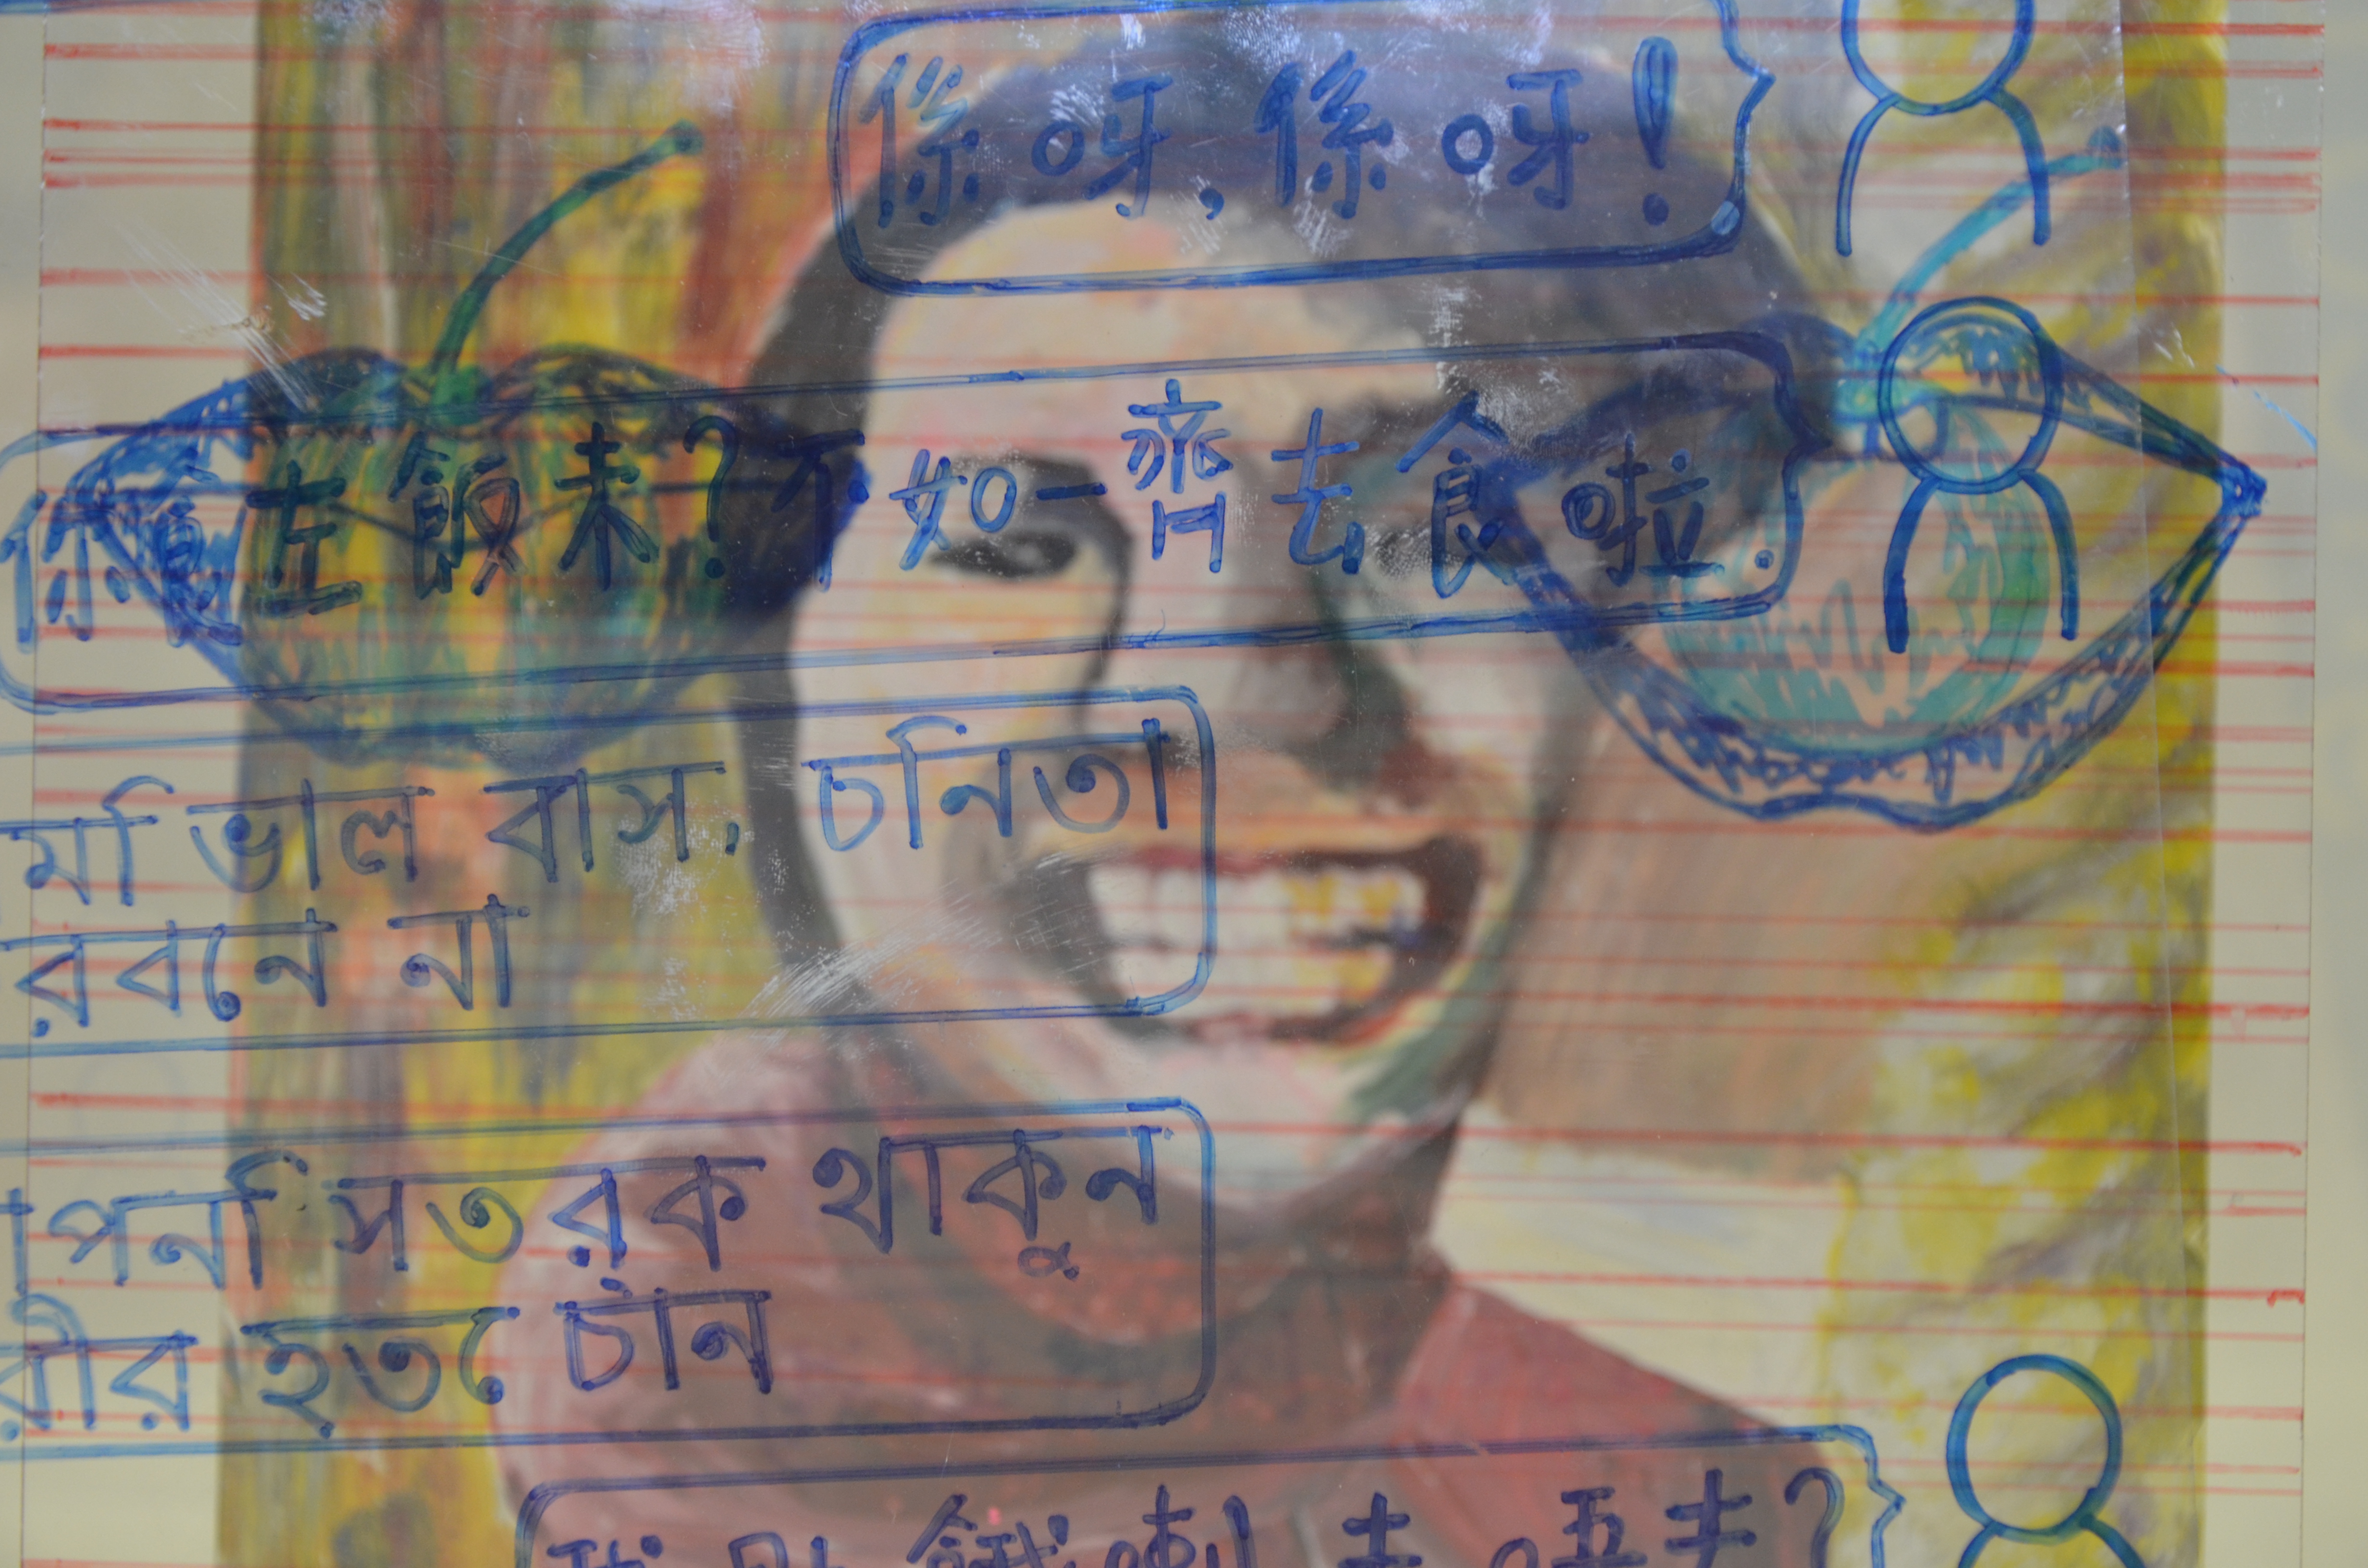 係呀,係呀!
你食左飯未?不如一齊去食啦.
মি ভাল বাস, চনিতা
রবনে না
াপনি সতরক থাকুন
রীর হতে চান
我肚餓喇 去唔去?